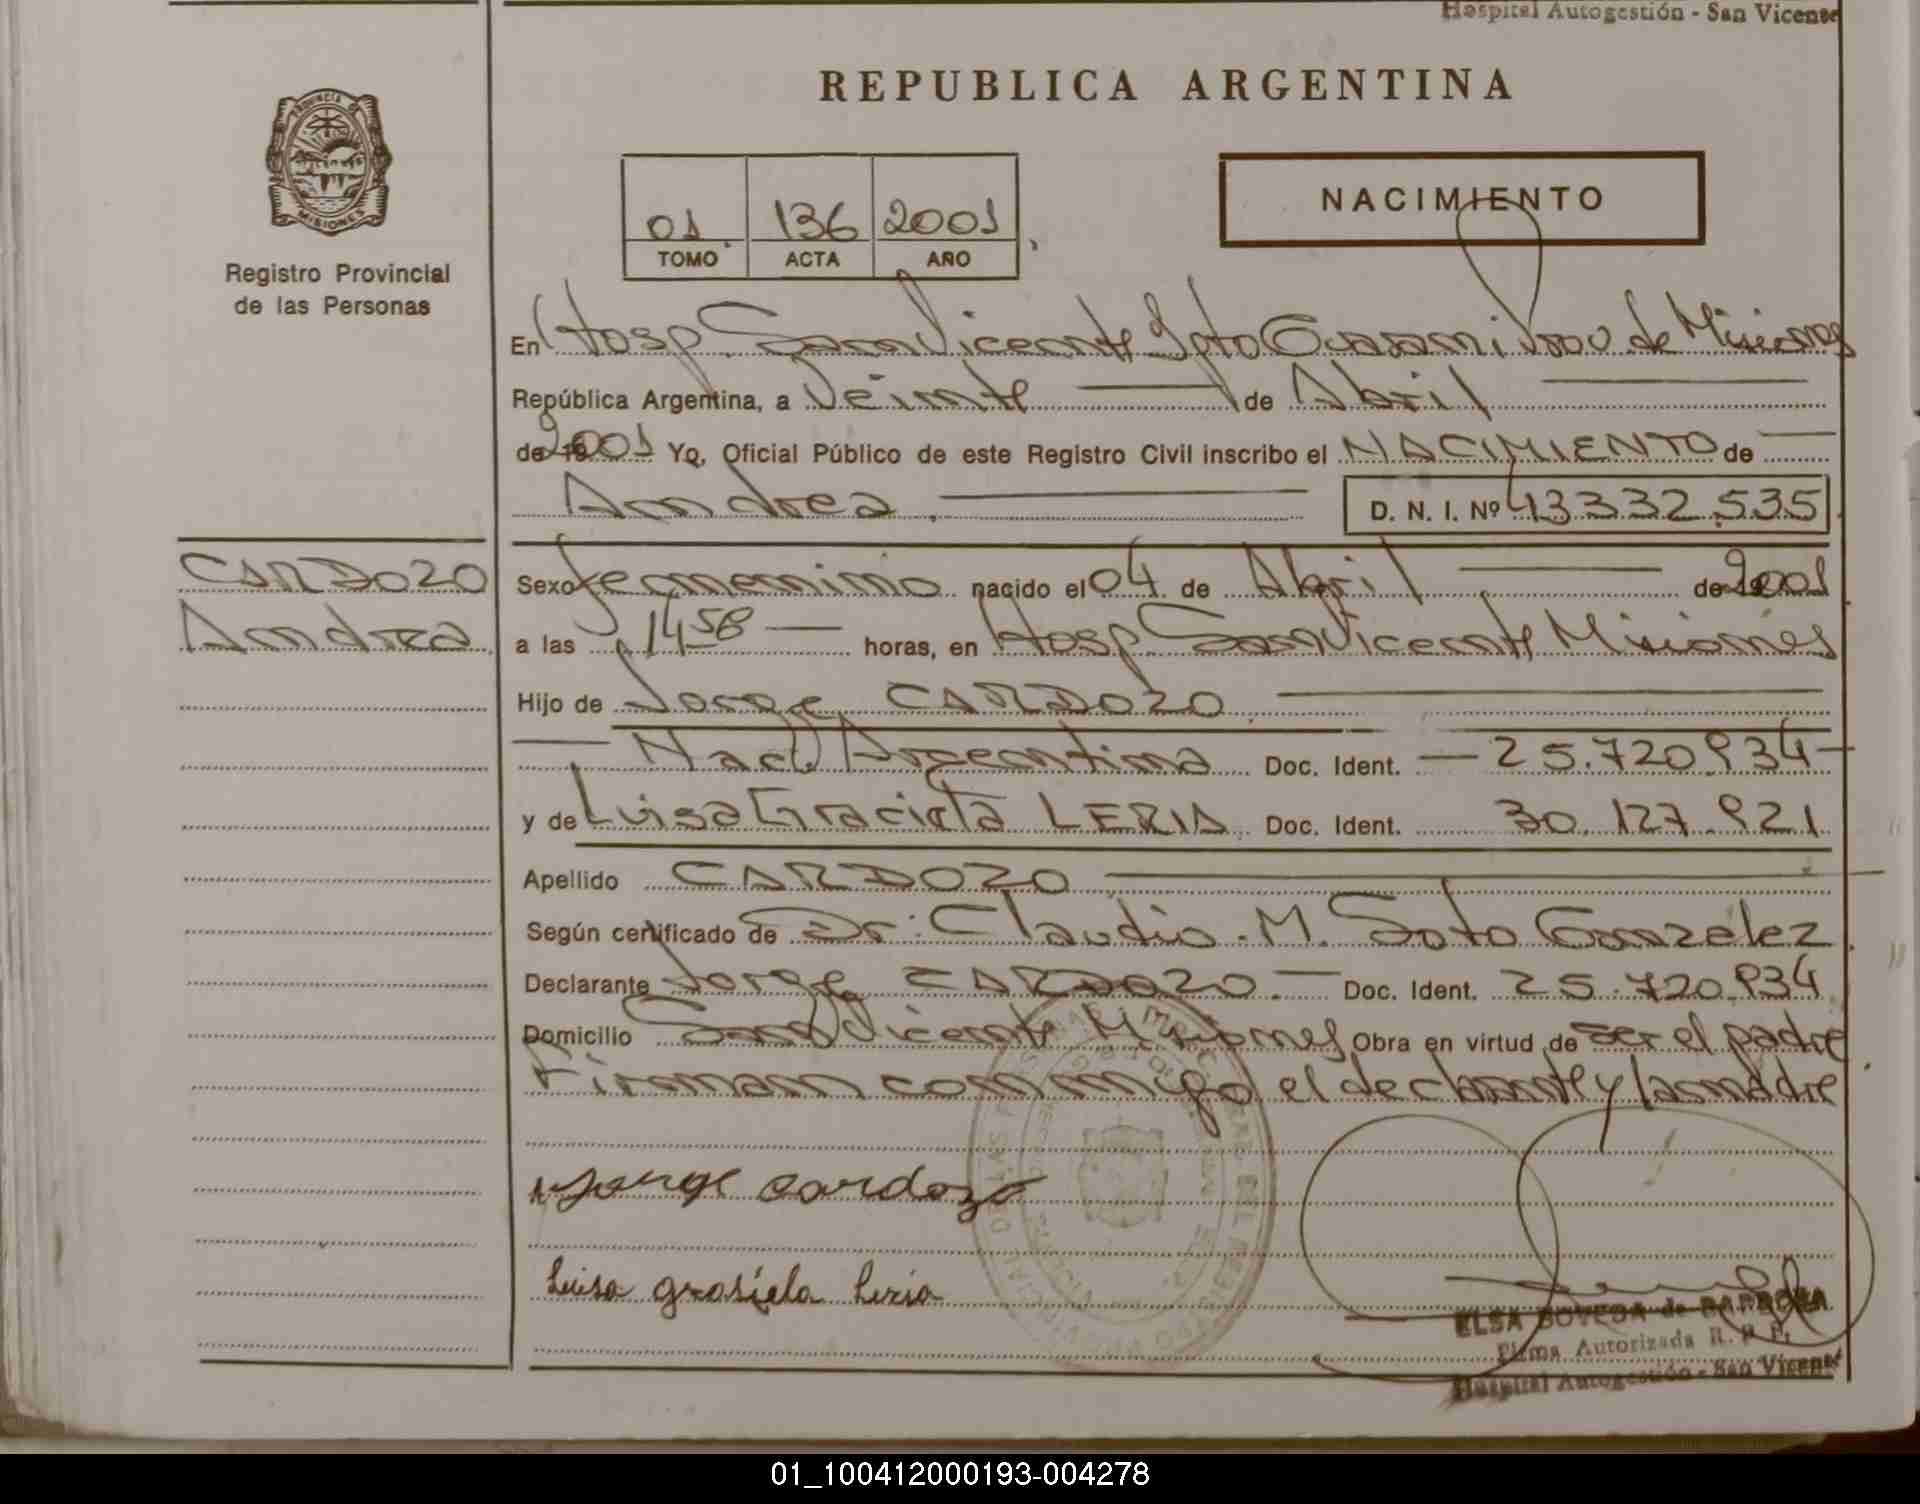 Hospital Autogestión - San Vicente
REPUBLICA ARGENTINA
PROVINCIA DE
MISIONES
Registro Provincial
de las Personas
01 136 2001
TOMO ACTA AÑO
NACIMIENTO
En Hosp. San Vicente Dpto Guarani Prov de Misiones
República Argentina, a Veinte de Abril
de 2001 Yo, Oficial Público de este Registro Civil inscribo el NACIMIENTO de
Andrea. D. N. I. Nº 43332.535
CARDOZO
Andrea.
Sexo femenino nacido el 04 de Abril de 2001
a las 1458 horas, en Hosp San Vicente Misiones
Hijo de Jorge CARDOZO
Nac. Argentina Doc. Ident. 25.720.934
y de Luisa Graciela LERIA Doc. Ident. 30.127.921
Apellido CARDOZO
Según certificado de Dr. Claudio M. Soto Gonzélez
Declarante Jorge CARDOZO. Doc. Ident. 25.720.934
Domicilio San Vicente Misiones Obra en virtud de ser el padre
Firman conmigo el declarante y la madre
Jorge cardozo
Luisa grasiela Leria
ELSA BOVEDA de BARBOZA
Firma Autorizada R. P. P.
Hospital Autogestión - San Vicente
01_100412000193-004278